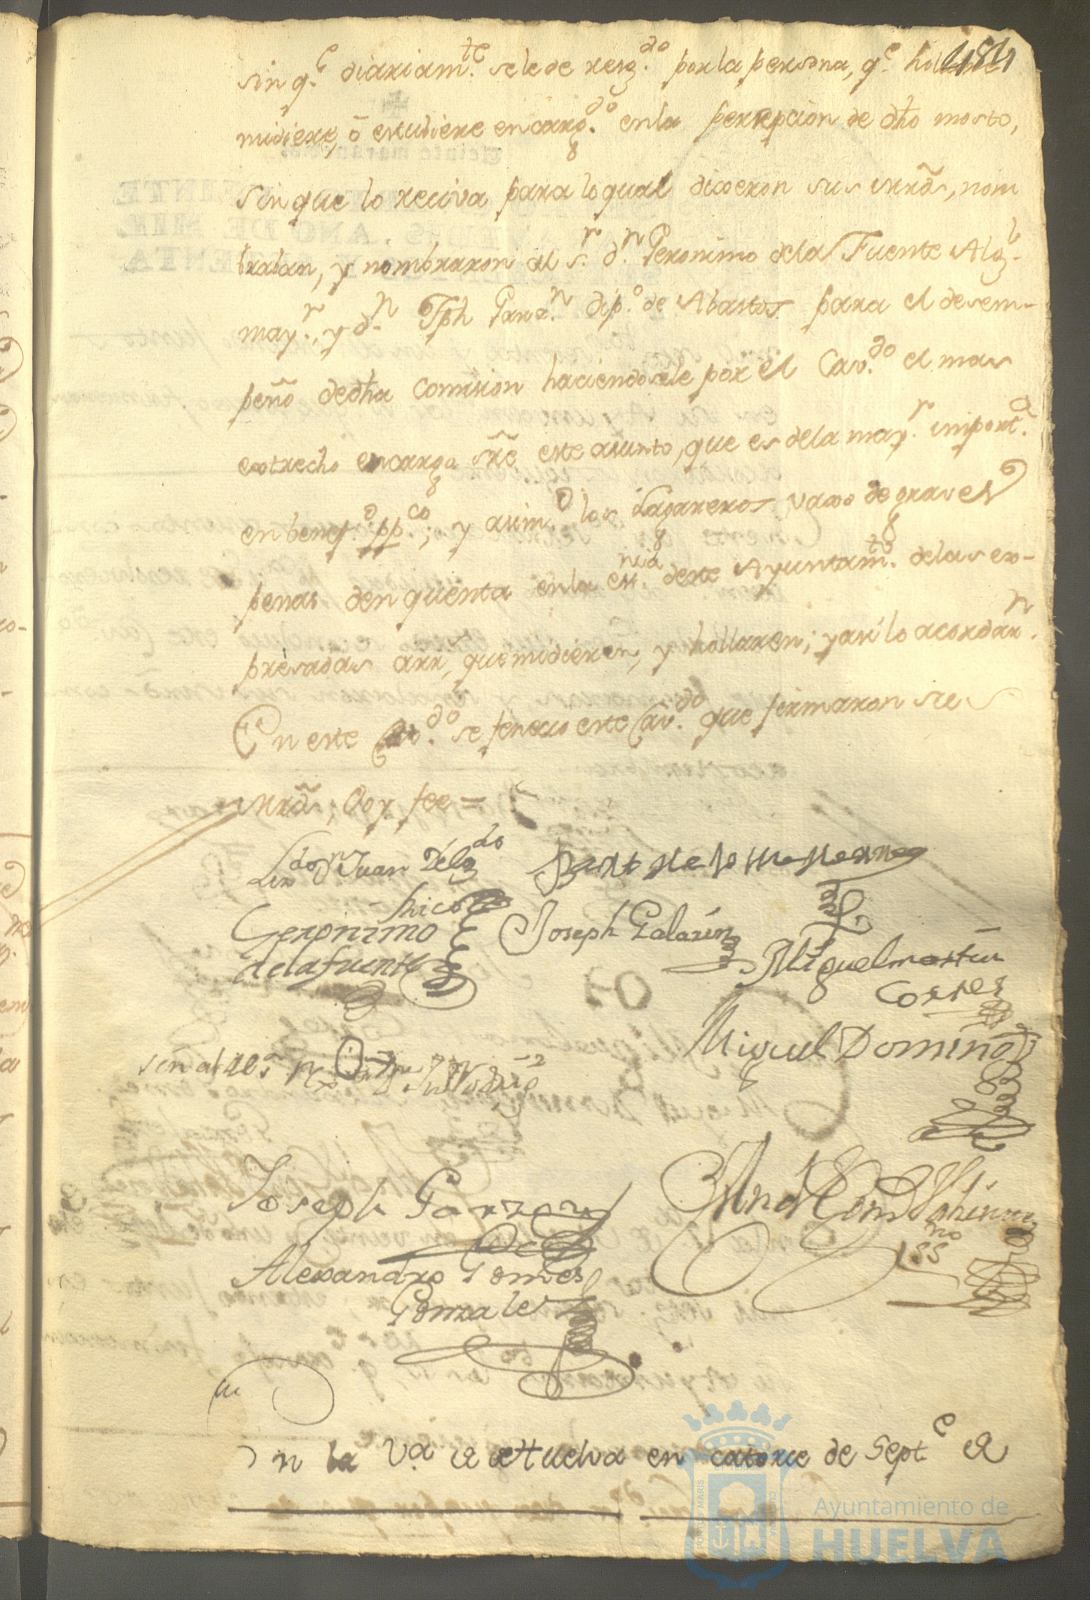 484
sin q.e diariam.te se le de resg.do por la persona, q.e hollare
midiere, ó estudiere encarg.do en la persepcion de dho mosto,
sin que lo reciva para lo qual dixeron sus mrds, nom
braban, y nombraron al s.r d.n Geronimo de la Fuente Alg.l
may.r, y d.n Jph Garz.n dip.o de Abastos para el desem-
peño de dha comision haciendosele por el Cav.do el mas
estrecho encargo sre este asunto, que es de la may.r import.a
en benef.o pp.co; y asim.o los Lagareros vaxo de graves
penas den quenta en la ess.nia de este Ayuntam.to de las ex-
presadas arr, que midieren, y hollaren; y asi lo acordar.n
En este Cav.do se fenecio este Cav.do que firmaron sus
mrds; Doy fee =
Lizdo Dn Juan Delg.do
Chico
Geronimo
de la fuente
Joseph Galarin
Miguel martin
Cortes
Miguel Domino
señal del s.r
Joseph Garzon
Alexandro Gomes
Gonzales
no
ss
En la V.a de Huelva en catorce de Sept.e de
Ayuntamiento de
HUELVA